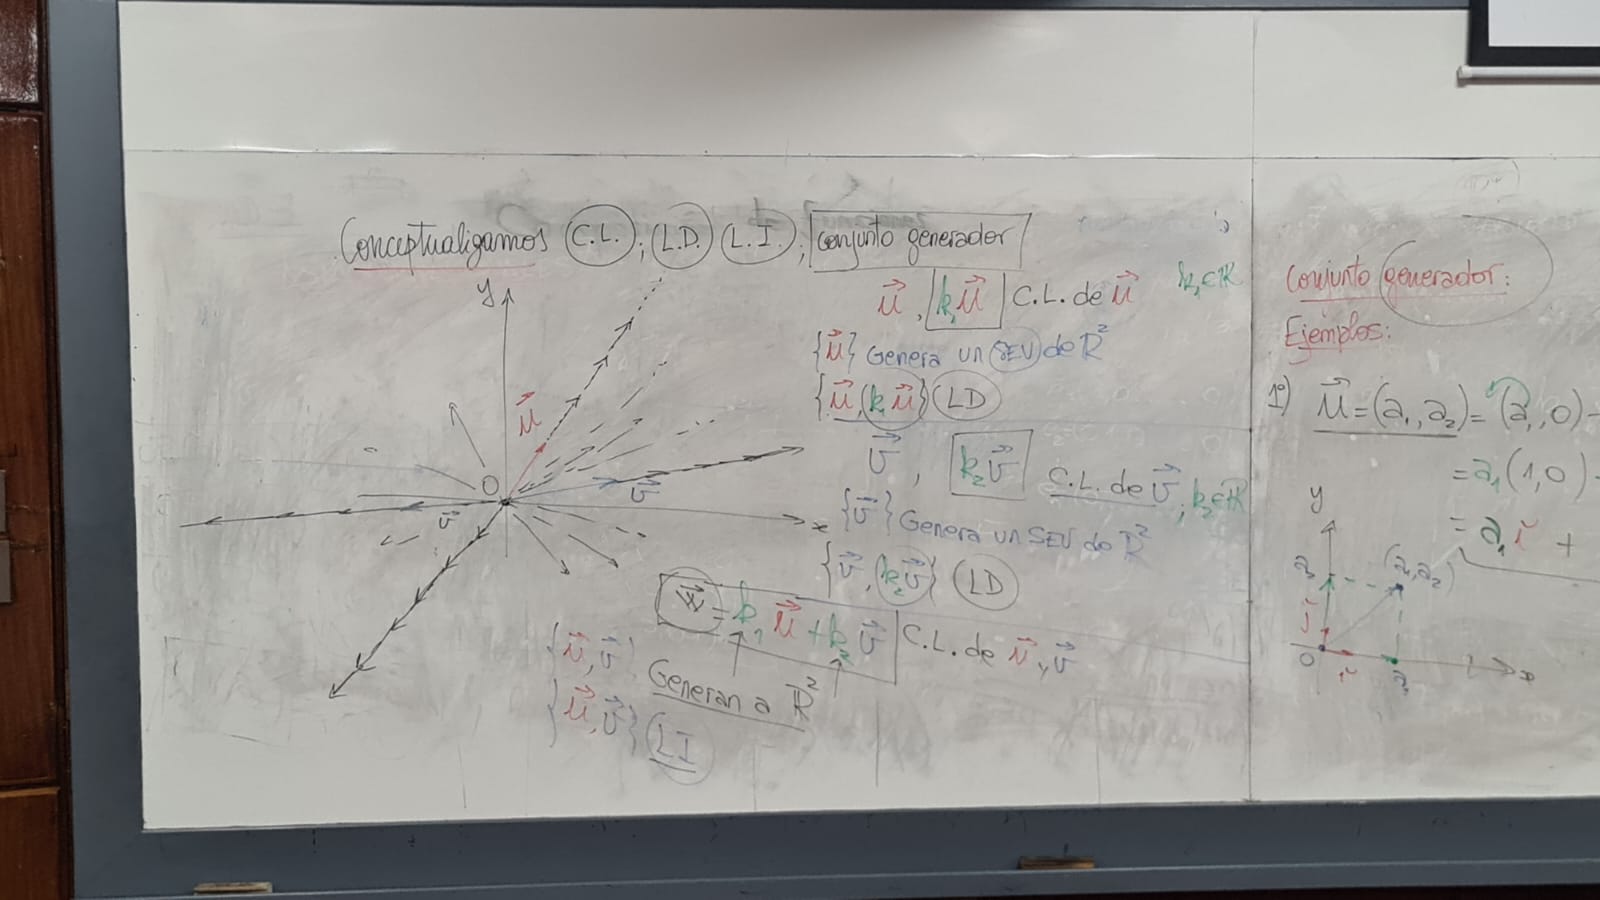 Conceptualizamos C.L.; L.D. L.I.; conjunto generador
y
u⃗
O
v⃗
v⃗
x
u⃗, k₁u⃗ C.L. de u⃗ k₁∈ℝ
{u⃗} Genera un SEV de ℝ²
{u⃗, k₁u⃗} LD
v⃗, k₂v⃗ C.L. de v⃗; k₂∈ℝ
{v⃗} Genera un SEV de ℝ²
{v⃗, k₂v⃗} LD
w⃗ = k₁u⃗ + k₂v⃗ C.L. de u⃗, v⃗
{u⃗, v⃗} Generan a ℝ²
{u⃗, v⃗} LI
Conjunto generador:
Ejemplos:
1º) u⃗ = (a₁, a₂) = (a₁, 0) +
= a₁(1, 0) +
= a₁ i⃗ +
y
a₂ (a₁, a₂)
j⃗
O i⃗ a₁ x